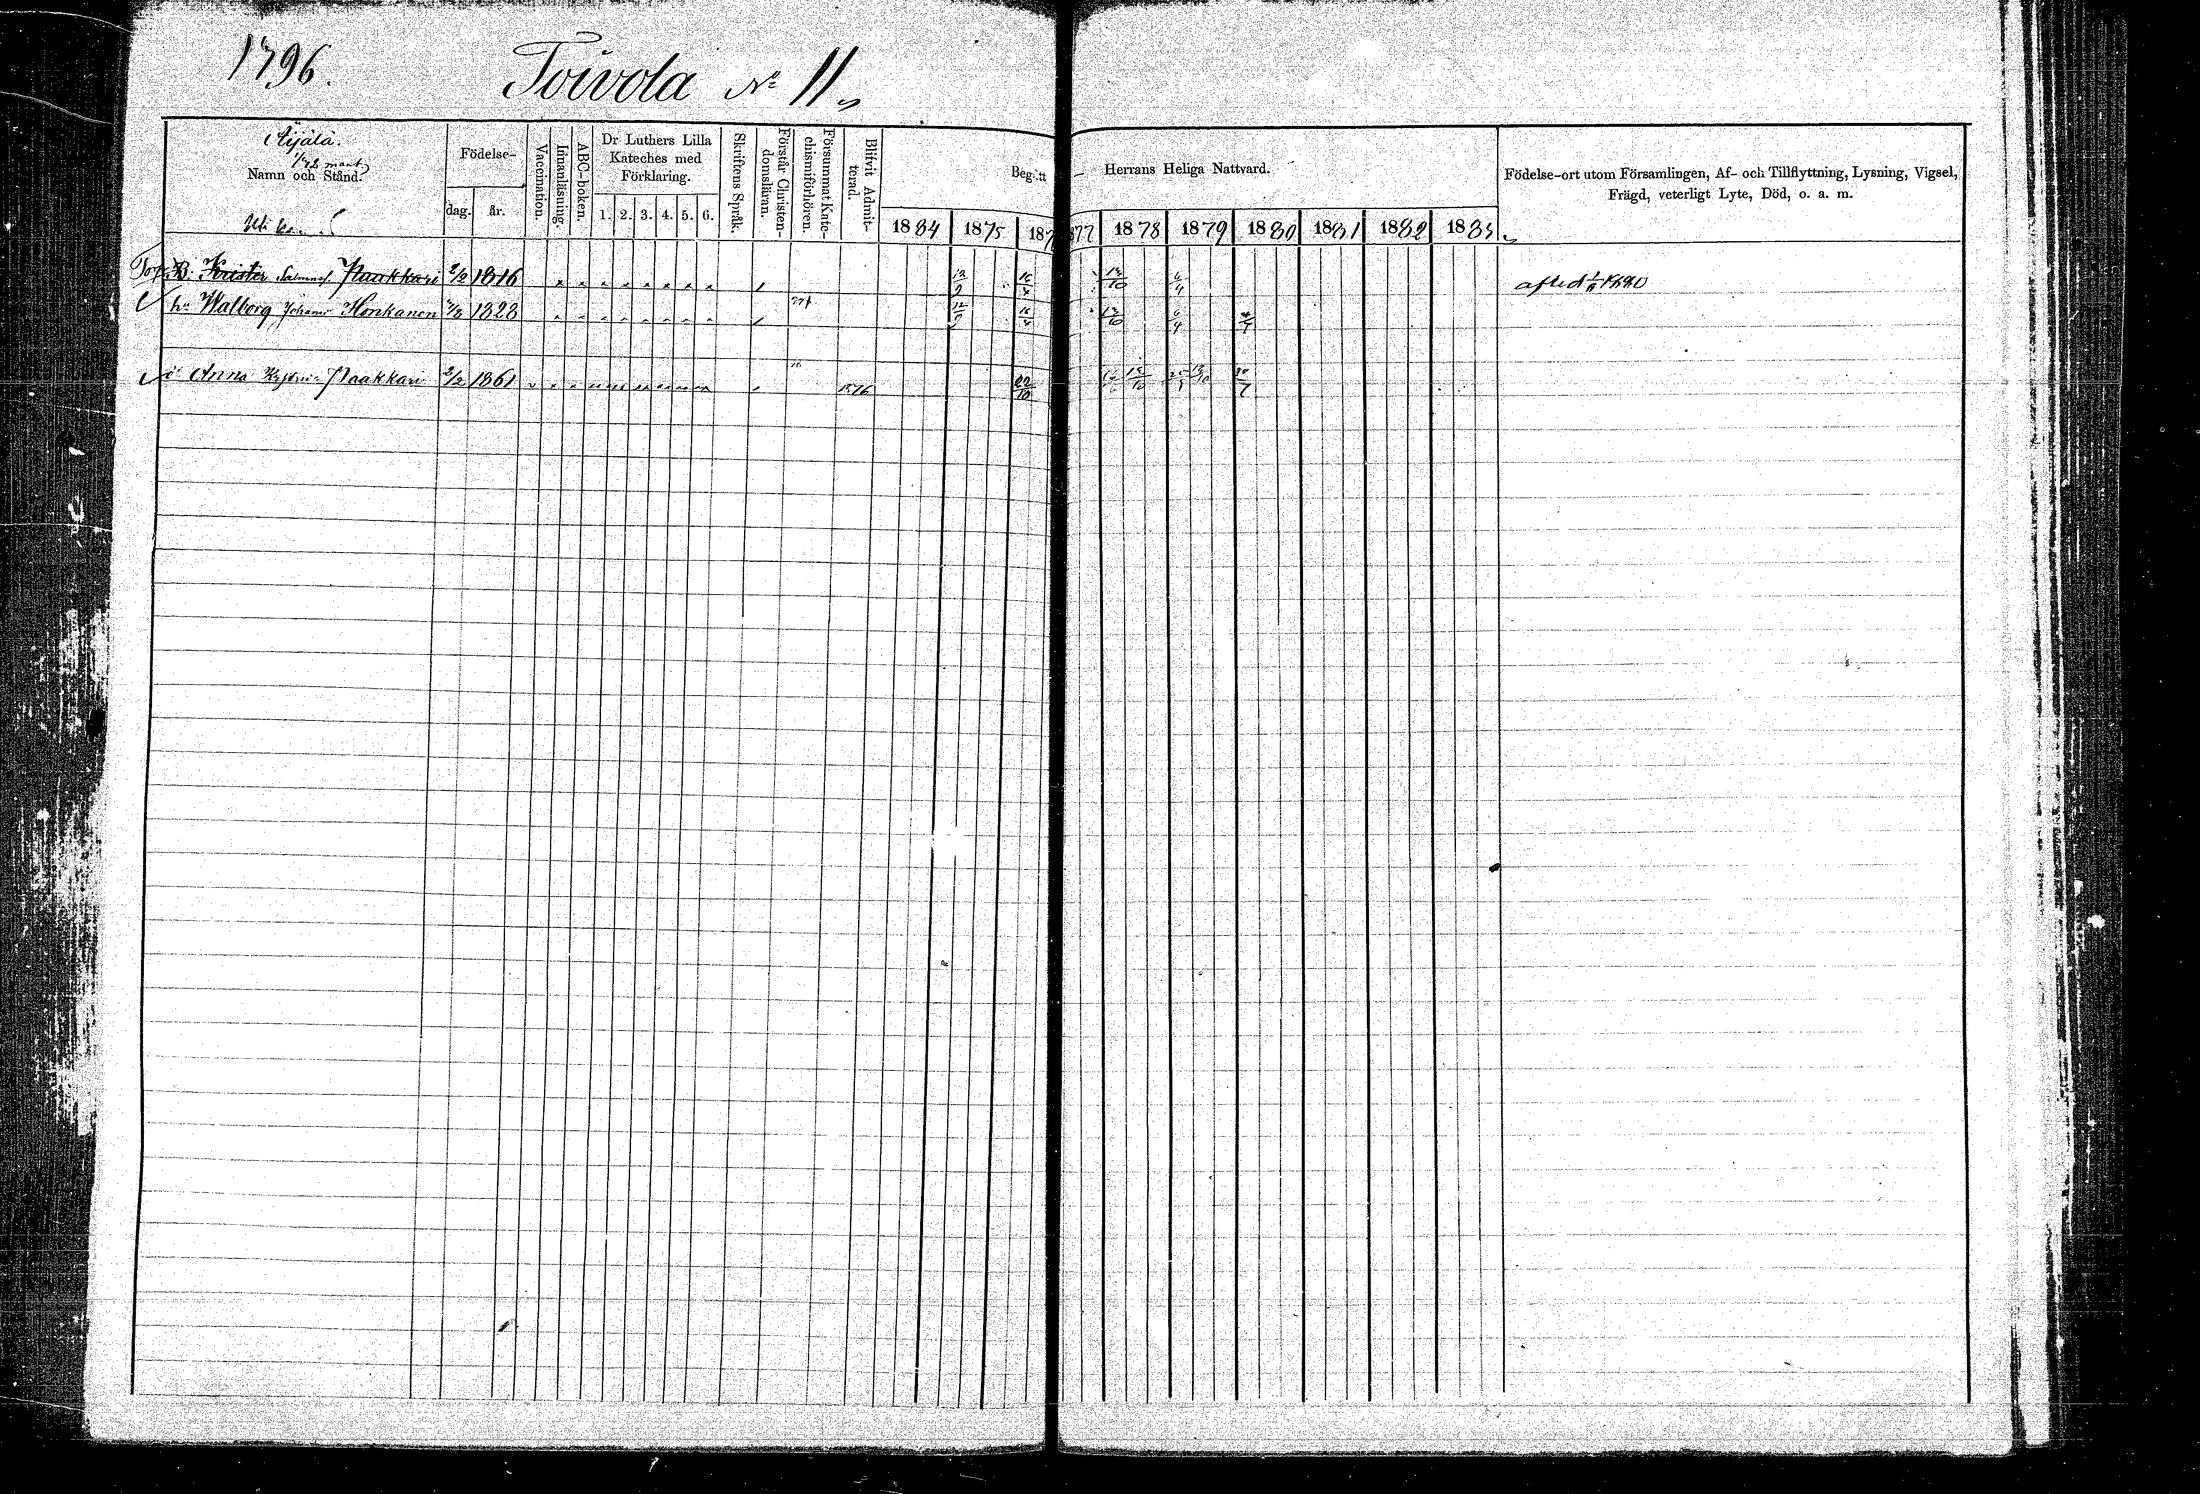 1796.
Toivola No 11
Äijälä.
mant.
Namn och Stånd.
Födelse-
dag. år.
Vaccination.
Innanläsning.
ABC-boken.
Dr Luthers Lilla
Kateches med
Förklaring.
1. 2. 3. 4. 5. 6.
Skriftens Språk.
Förstår Christen-
domsläran.
Försummat Kate-
chismiförhören.
Blifvit Admit-
terad.
Begått Herrans Heliga Nattvard.
1884 1875 187 877 1878 1879 1880 1881 1882 1883
Födelse-ort utom Församlingen, Af- och Tillflyttning, Lysning, Vigsel,
Frägd, veterligt Lyte, Död, o. a. m.
B. Krister Salomonsf. Paakkari 2/2 1816 12/9 16/4 13/10 6/4 afled 1880
hu Walborg Johansd Honkanen 1828 77 12/9 16/4 13/10 6/4 4/7
Anna Krist. Paakkari 2/2 1861 1876 22/10 13/10 13/10 20/7